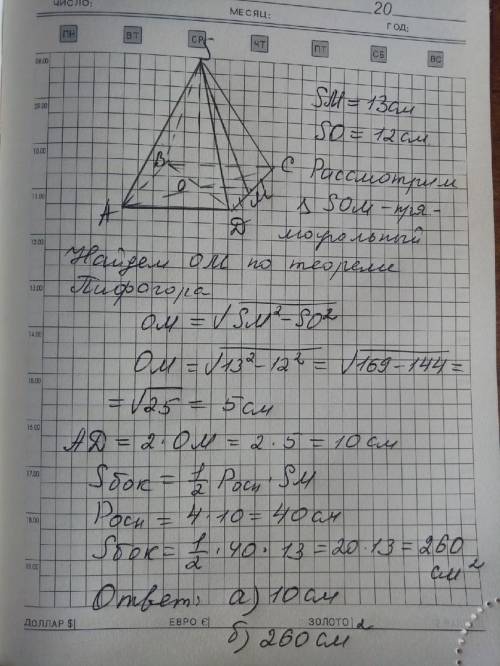 ЧИСЛО:
МЕСЯЦ:
20
ГОД:
ПН ВТ СР ЧТ ПТ СБ ВС
S
08.00
09.00
10.00
11.00
12.00
13.00
14.00
15.00
16.00
17.00
18.00
19.00
A B C Д O M
SM = 13см
SO = 12см
Рассмотрим
Δ SOM - пря-
моугольный
Найдем OM по теореме
Пифогора
OM = √SM² - SO²
OM = √13² - 12² = √169 - 144 =
= √25 = 5 см
AД = 2 · OM = 2 · 5 = 10 см
Sбок = 1/2 Pосн · SM
Pосн = 4 · 10 = 40 см
Sбок = 1/2 · 40 · 13 = 20 · 13 = 260
см²
Ответ: а) 10 см
б) 260 см²
ДОЛЛАР $| ЕВРО €| ЗОЛОТО|